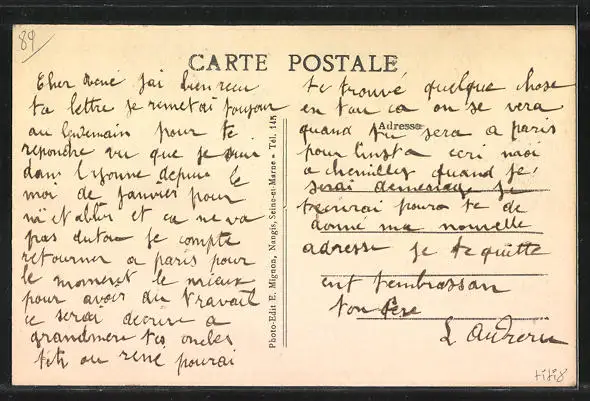 89
CARTE POSTALE
Cher René j'ai bien recu
ta lettre je remetai toujour
au lendemain pour te
repondre vu que je suis
dans l'yonne depuie le
moi de janvier pour
et ca ne va
pas dutou je compte
retourner a paris pour
le moment le mieux
pour avoir du travail
ce serai decrire a
grandmere tes oncles
ou rene pourai
te trouvé quelque chose
en tou ca on se vera
quand je sera a paris
pour linsta ecri moi
a chemilley quand je
serai demenage je
tecrirai pour te de
donné ma nouvelle
adresse je te quitte
ent tembrassan
ton Père
Adresse
Photo-Edit E. Mignon, Nangis, Seine-et-Marne - Tél. 145